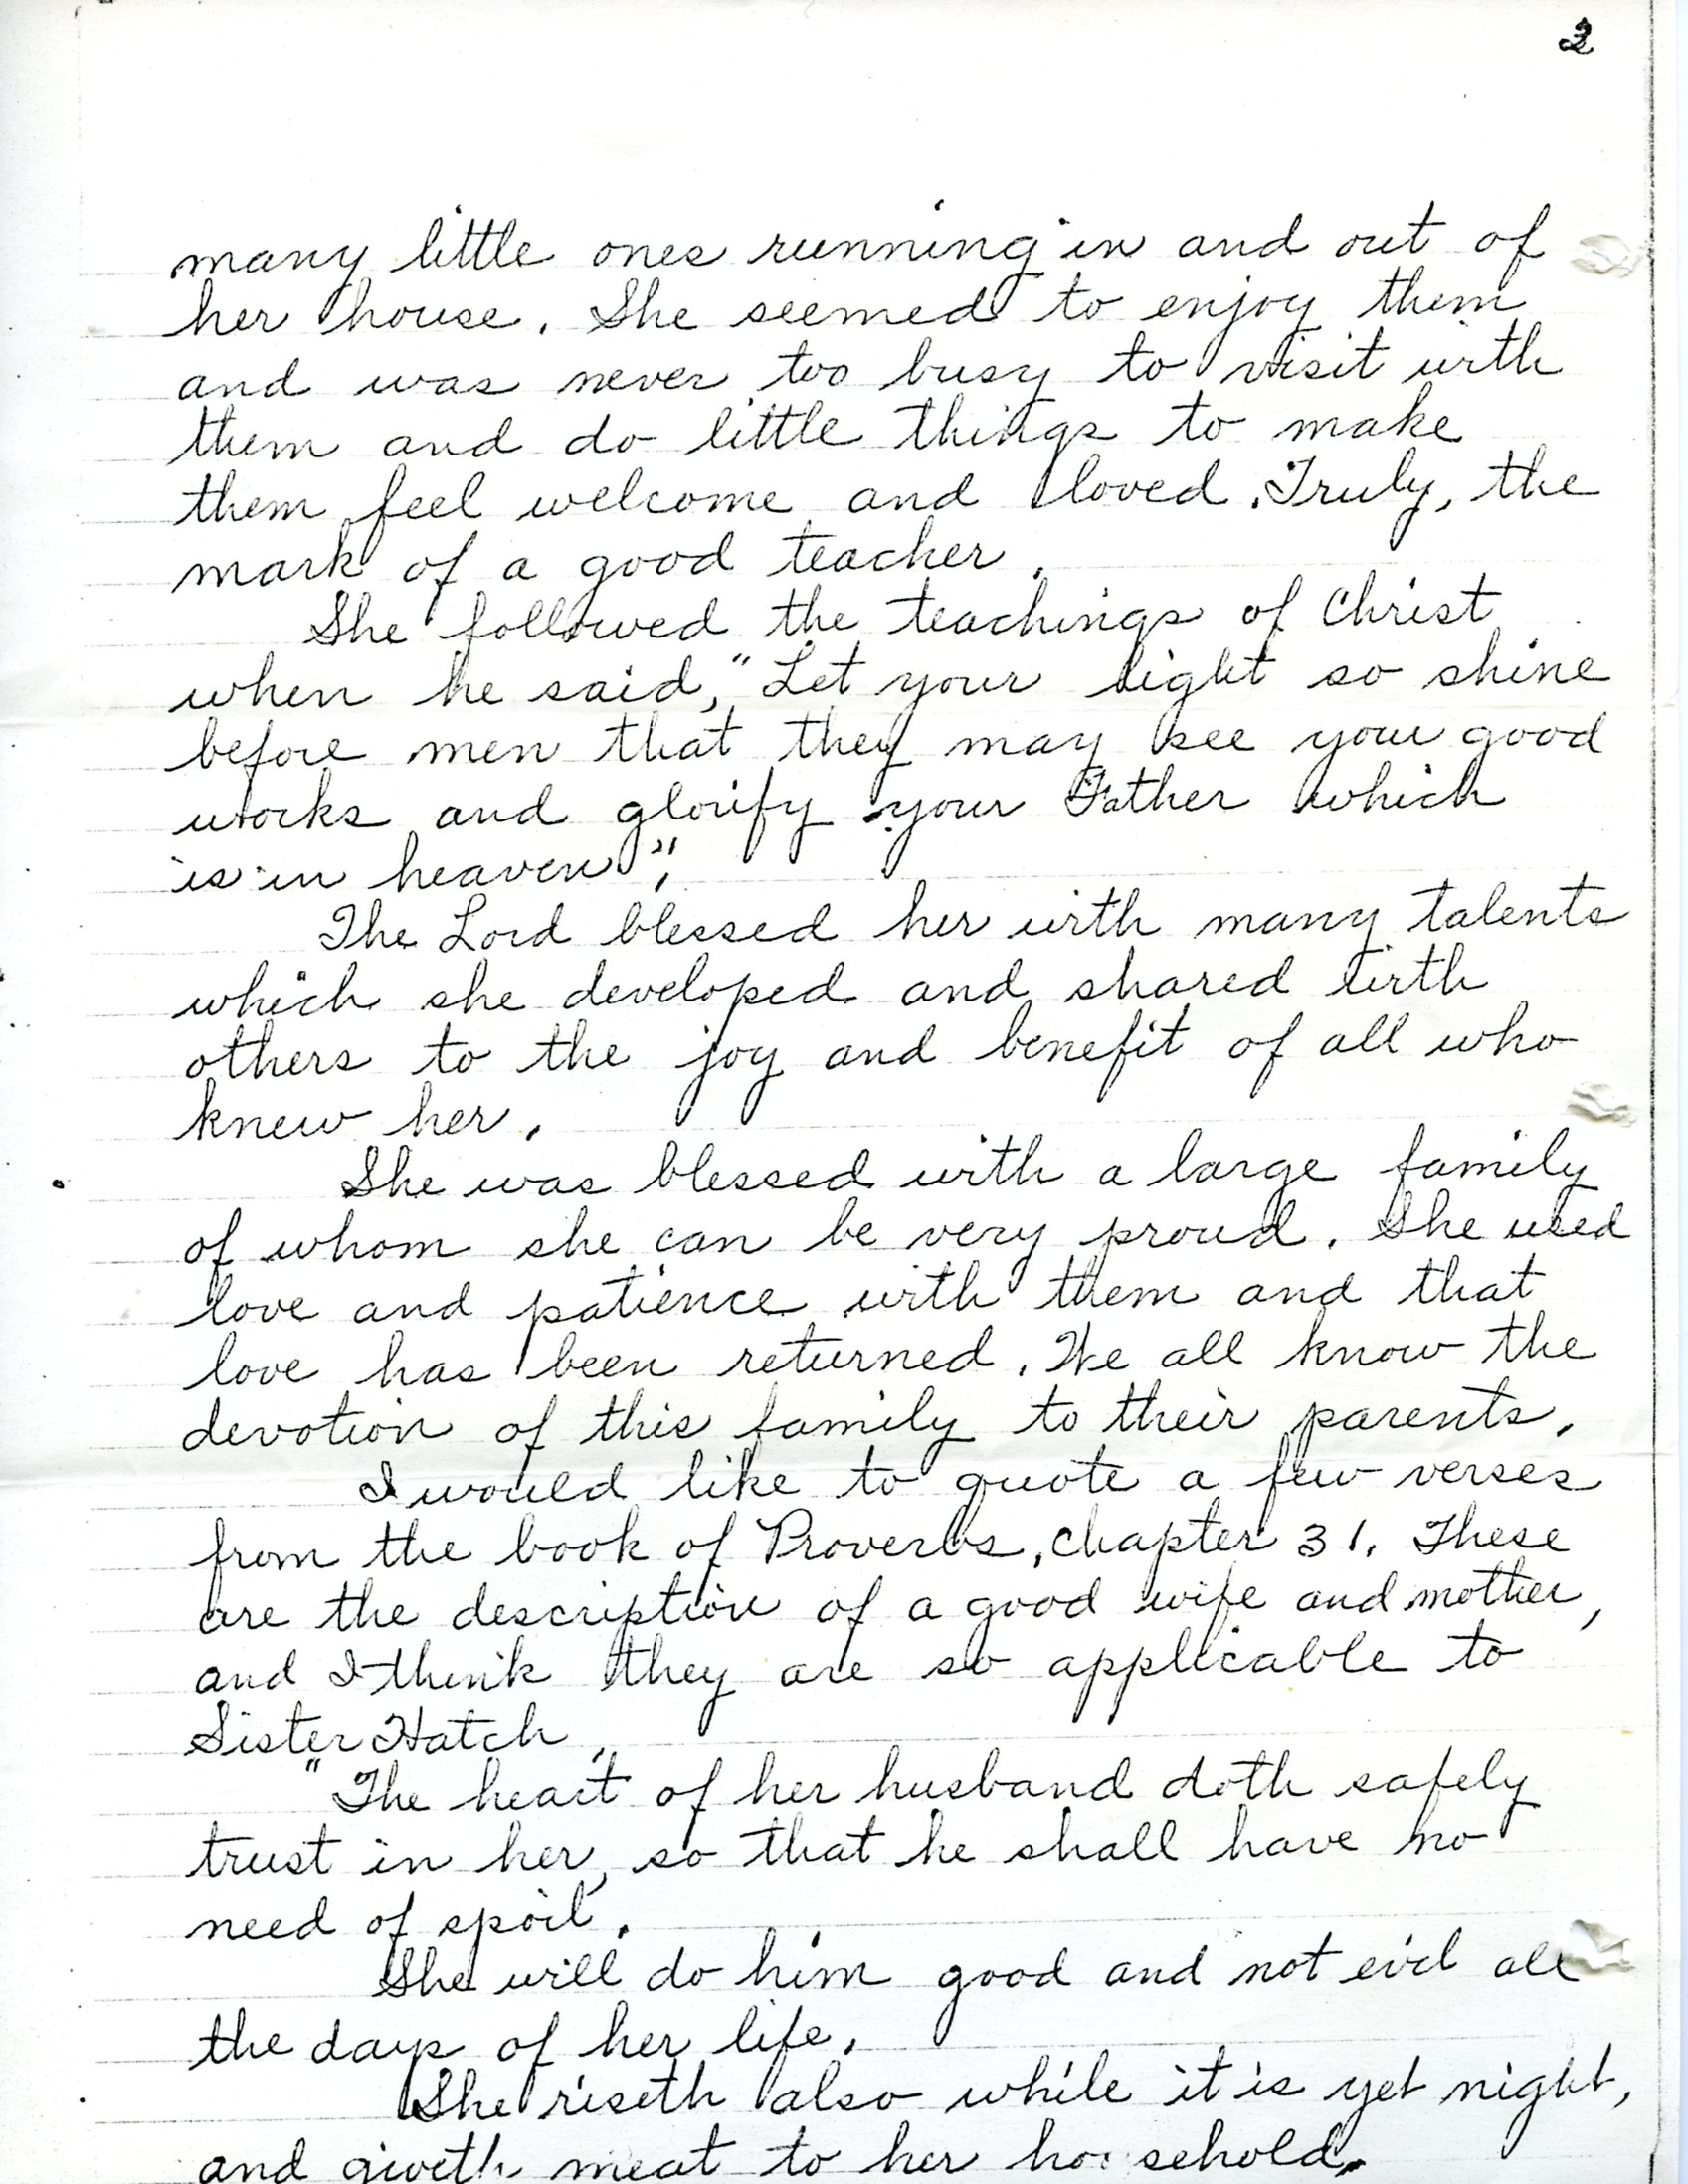 2
many little ones running in and out of
her house. She seemed to enjoy them
and was never too busy to visit with
them and do little things to make
them feel welcome and loved. Truly, the
mark of a good teacher.
She followed the teachings of Christ
when he said, "Let your light so shine
before men that they may see your good
works and glorify your Father which
is in heaven".
The Lord blessed her with many talents
which she developed and shared with
others to the joy and benefit of all who
knew her.
She was blessed with a large family
of whom she can be very proud. She used
love and patience with them and that
love has been returned. We all know the
devotion of this family to their parents.
I would like to quote a few verses
from the book of Proverbs, chapter 31. These
are the description of a good wife and mother,
and I think they are so applicable to
Sister Hatch.
"The heart of her husband doth safely
trust in her, so that he shall have no
need of spoil.
She will do him good and not evil all
the days of her life.
She riseth also while it is yet night,
and giveth meat to her household.